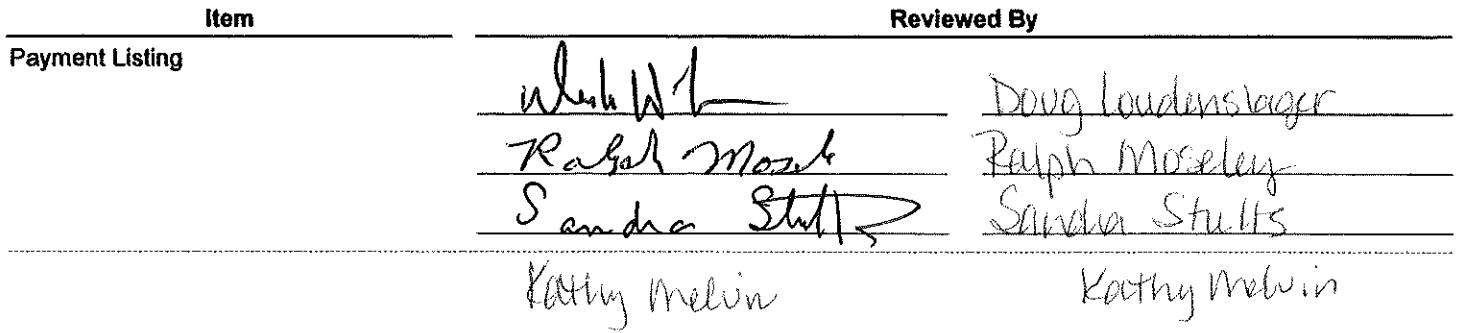 Item Reviewed By
Payment Listing
Doug Loudenslager
Ralph Mosele Ralph Moseley
Sandra Stults Sandra Stults
Kathy Melvin Kathy Melvin